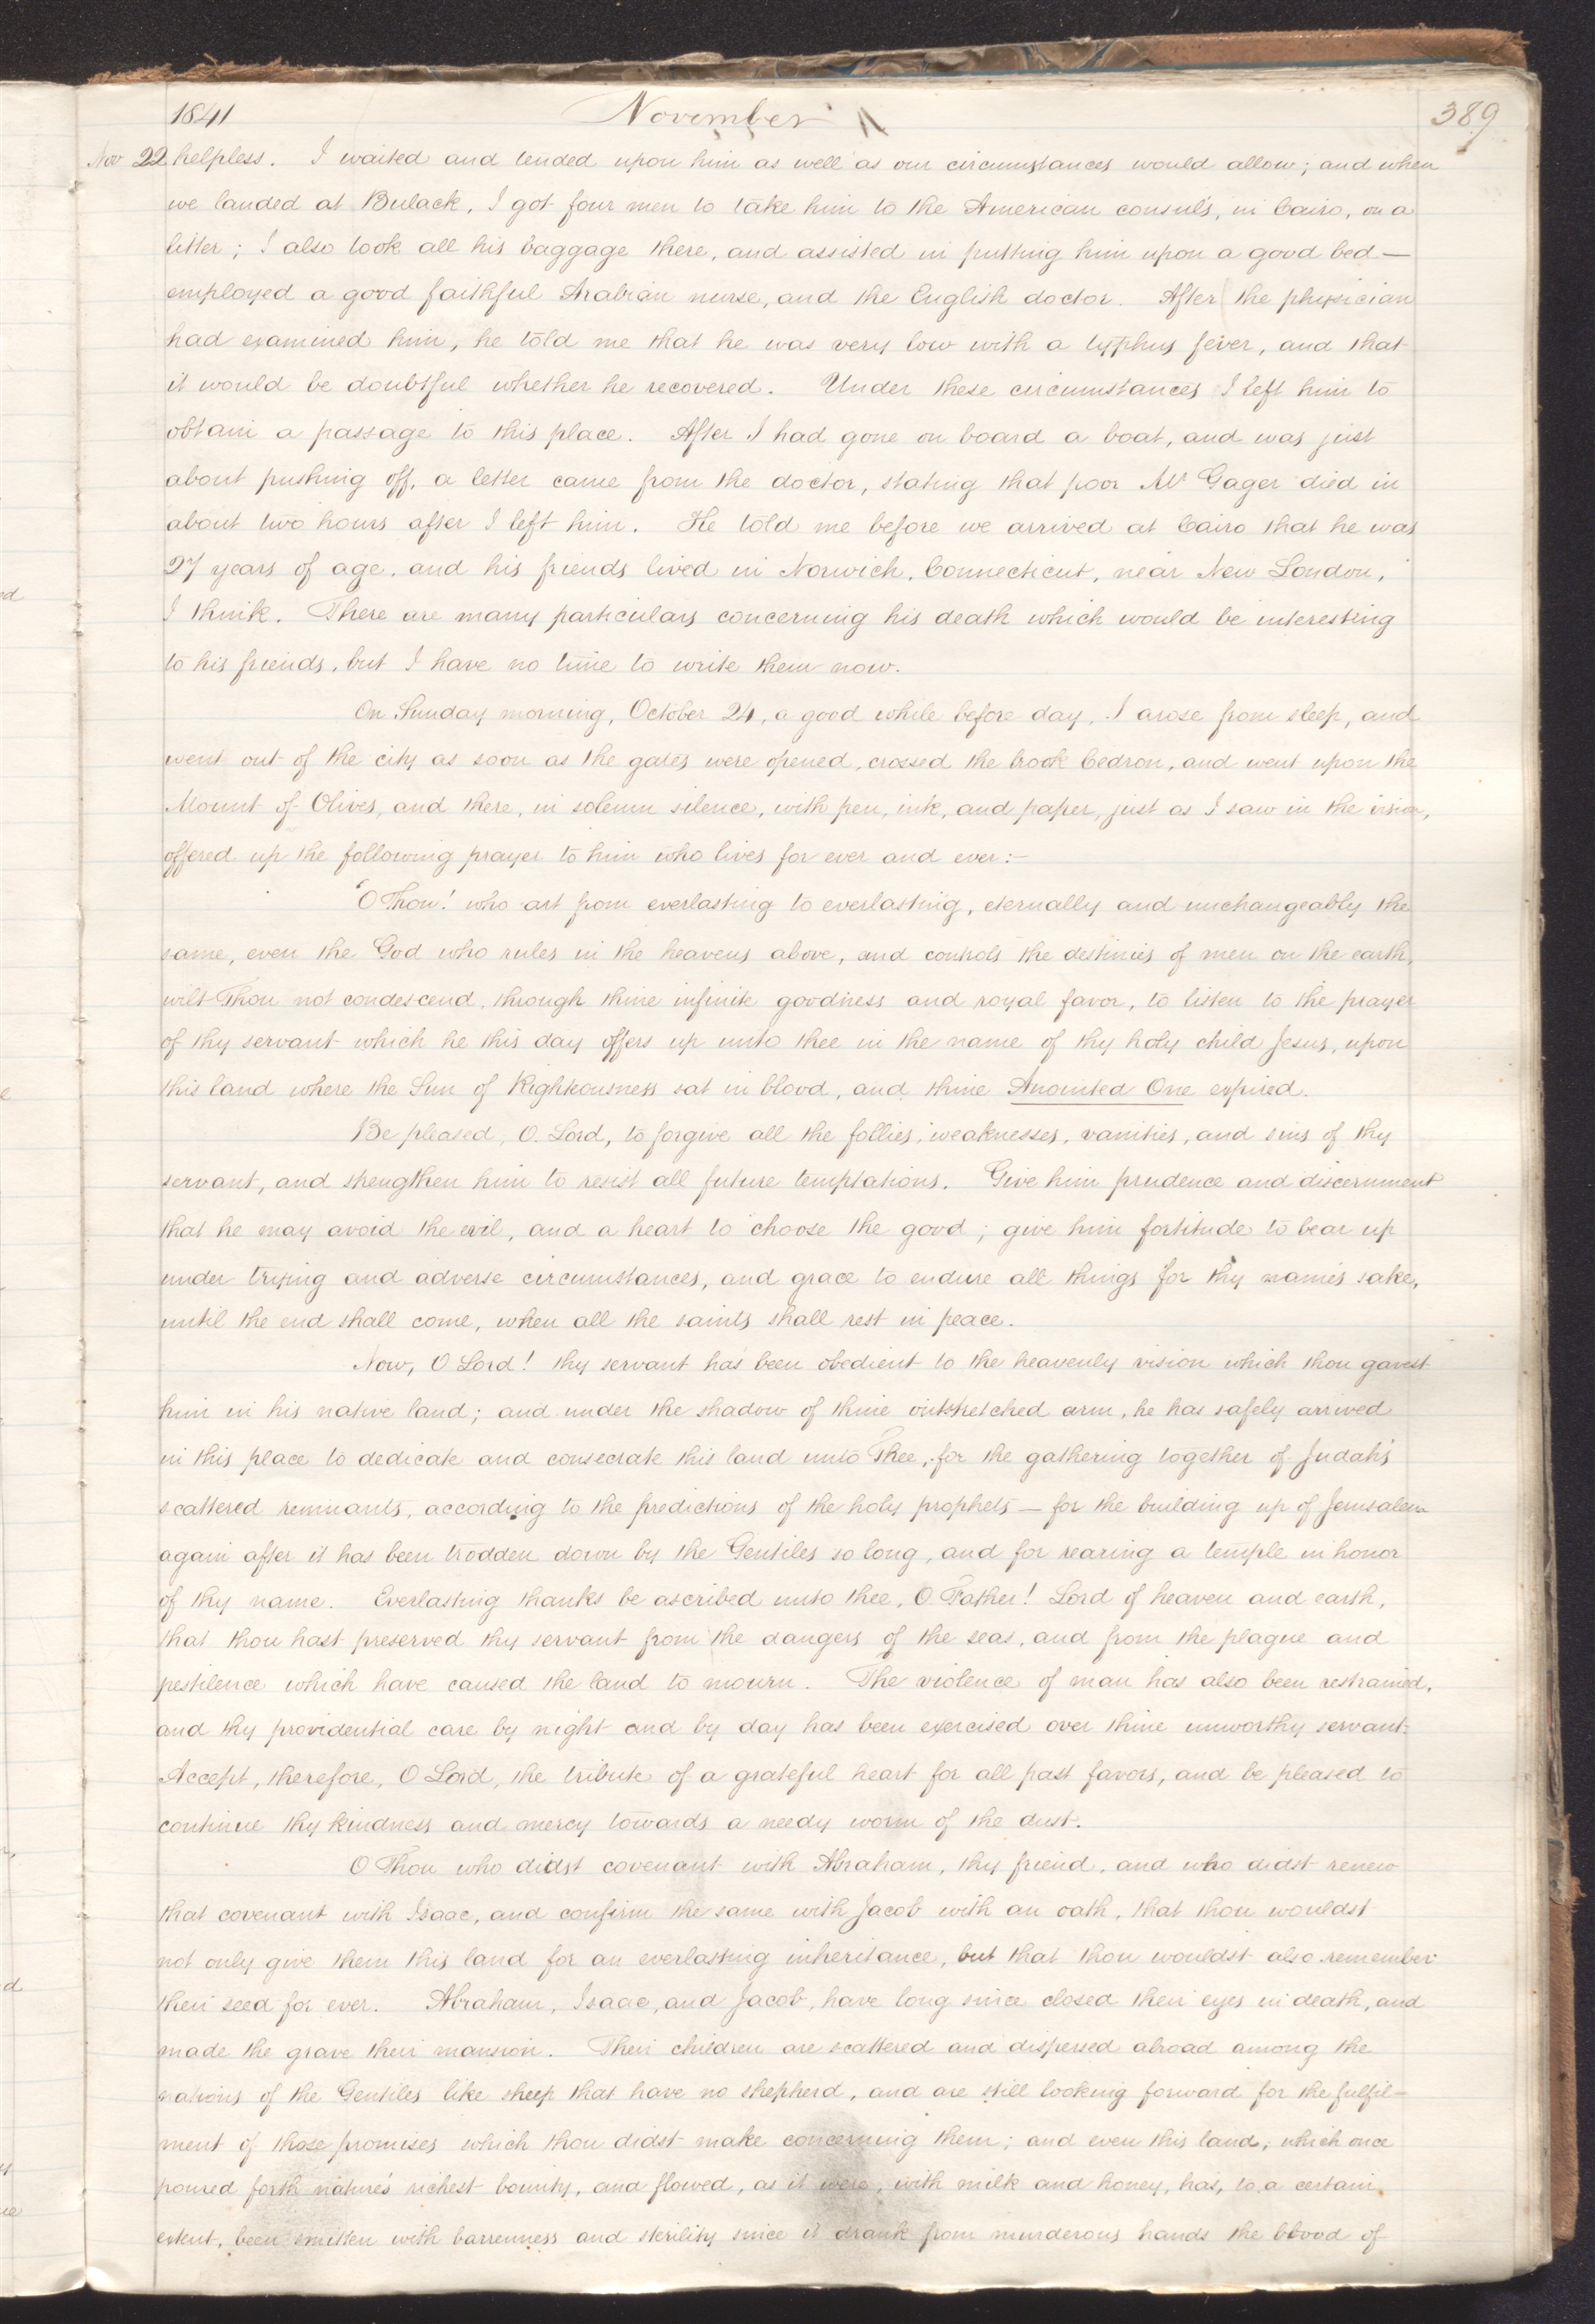 1841 November 389
Nov 22 helpless. I waited and tended upon him as well as our circumstances would allow; and when
we landed at Bulack, I got four men to take him to the American consul's, in Cairo, on a
litter; I also took all his baggage there, and assisted in putting him upon a good bed—
employed a good faithful Arabian nurse, and the English doctor. After the physician
had examined him, he told me that he was very low with a typhus fever, and that
it would be doubtful whether he recovered. Under these circumstances I left him to
obtain a passage to this place. After I had gone on board a boat, and was just
about pushing off, a letter came from the doctor, stating that poor Mr Gager died in
about two hours after I left him. He told me before we arrived at Cairo that he was
27 years of age, and his friends lived in Norwich, Connecticut, near New London,
I think. There are many particulars concerning his death which would be interesting
to his friends, but I have no time to write them now.
On Sunday morning, October 24, a good while before day, I arose from sleep, and
went out of the city as soon as the gates were opened, crossed the brook Cedron, and went upon the
Mount of Olives, and there, in solemn silence, with pen, ink, and paper, just as I saw in the vision,
offered up the following prayer to him who lives for ever and ever:—
"O Thou! who art from everlasting to everlasting, eternally and unchangeably the
same, even the God who rules in the heavens above, and controls the destinies of men on the earth,
wilt Thou not condescend, through thine infinite goodness and royal favor, to listen to the prayer
of thy servant which he this day offers up unto thee in the name of thy holy child Jesus, upon
this land where the Sun of Righteousness sat in blood, and thine Anointed One expired.
Be pleased, O. Lord, to forgive all the follies, weaknesses, vanities, and sins of thy
servant, and strengthen him to resist all future temptations. Give him prudence and discernment
that he may avoid the evil, and a heart to choose the good; give him fortitude to bear up
under trying and adverse circumstances, and grace to endure all things for thy name's sake,
until the end shall come, when all the saints shall rest in peace.
Now, O Lord! thy servant has been obedient to the heavenly vision which thou gavest
him in his native land; and under the shadow of thine outstretched arm, he has safely arrived
in this place to dedicate and consecrate this land unto Thee, for the gathering together of Judah's
scattered remnants, according to the predictions of the holy prophets — for the building up of Jerusalem
again after it has been trodden down by the Gentiles so long, and for rearing a temple in honor
of thy name. Everlasting thanks be ascribed unto thee, O Father! Lord of heaven and earth,
that thou hast preserved thy servant from the dangers of the seas, and from the plague and
pestilence which have caused the land to mourn. The violence of man has also been restrained,
and thy providential care by night and by day has been exercised over thine unworthy servant.
Accept, therefore, O Lord, the tribute of a grateful heart for all past favors, and be pleased to
continue thy kindness and mercy towards a needy worm of the dust.
O Thou who didst covenant with Abraham, thy friend, and who didst renew
that covenant with Isaac, and confirm the same with Jacob with an oath, that thou wouldst
not only give them this land for an everlasting inheritance, but that thou wouldst also remember
their seed for ever. Abraham, Isaac, and Jacob, have long since closed their eyes in death, and
made the grave their mansion. Their children are scattered and dispersed abroad among the
nations of the Gentiles like sheep that have no shepherd, and are still looking forward for the fulfil-
ment of those promises which thou didst make concerning them; and even this land, which once
poured forth nature's richest bounty, and flowed, as it were, with milk and honey, has, to a certain
extent, been smitten with barrenness and sterility since it drank from murderous hands the blood of